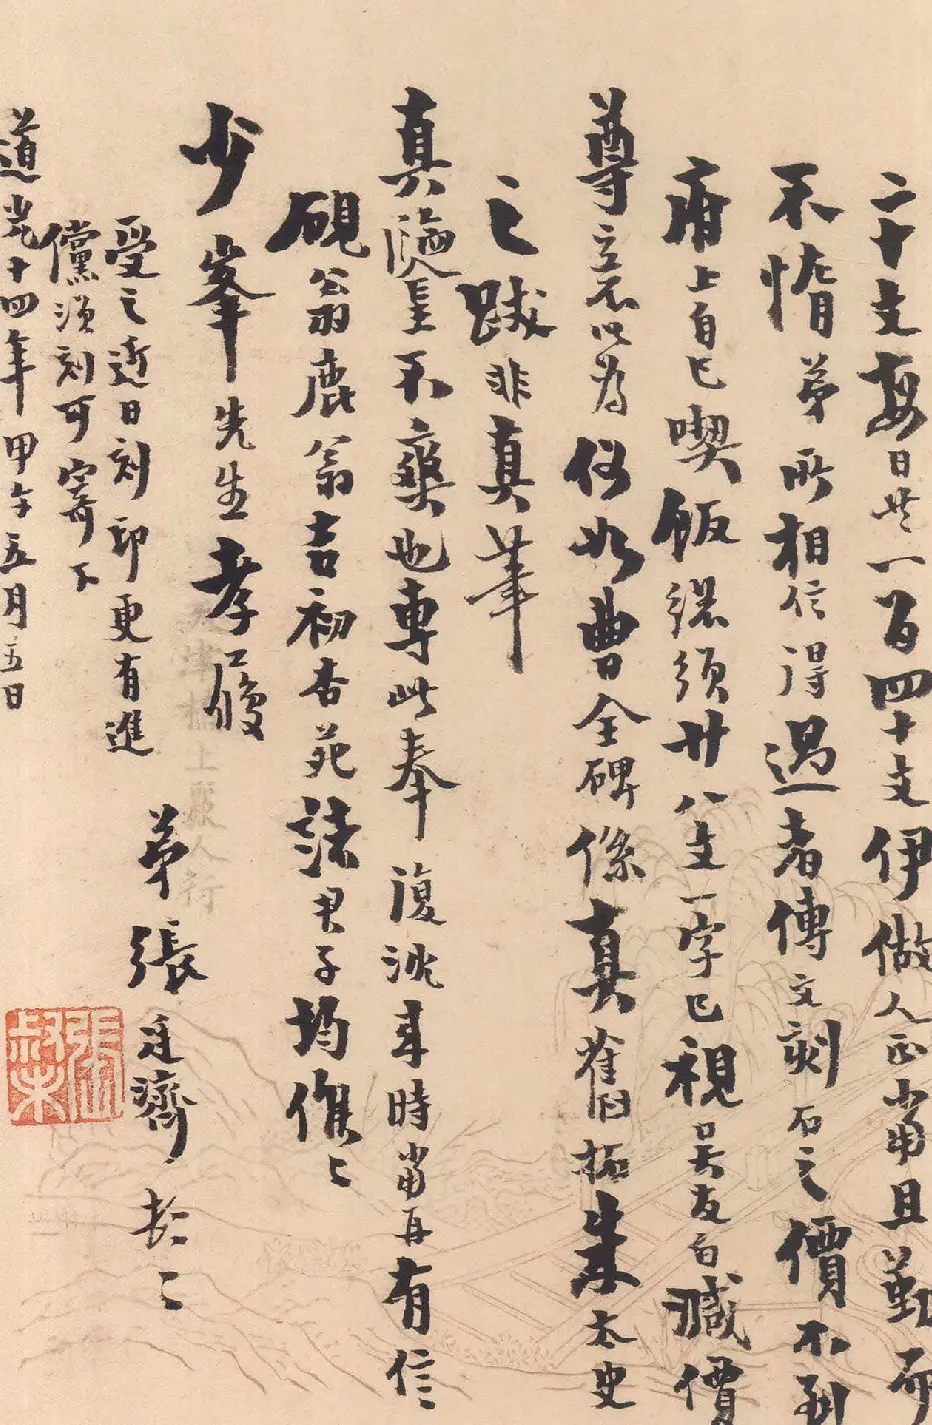 二十支每日共一百四十支伊做人正當且勤而
不惰弟所相信得過者傳文刻石之價不到
府上自已喫飯總須廿八支一字已視吳友白減價
尊意不以為何如曹全碑係真舊拓朱太史
之跋非真筆
真不藥也專此奉復洮年時當再有信
硯翁鹿翁吉初杏苑諸君子均候〻
少峯先生孝履
弟張廷濟 〻
受之近日刻印更有進
儻須刻可寄下
道光十四年甲午五月五日
張叔未